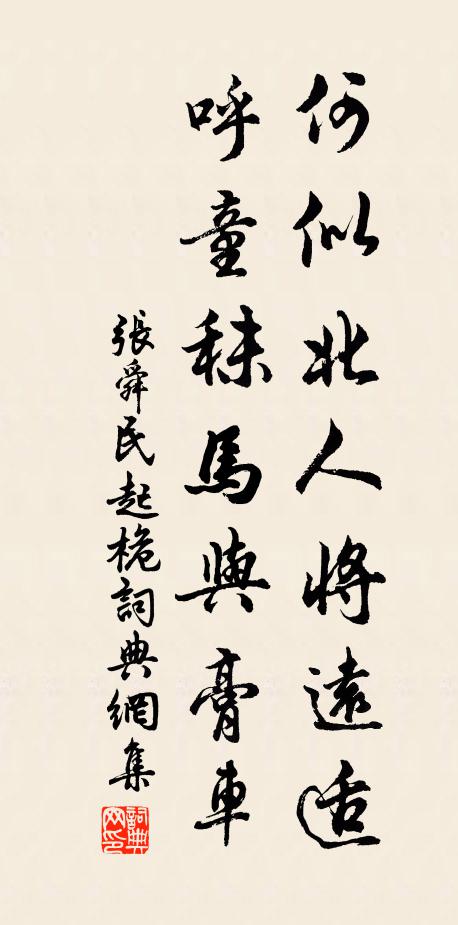 何似北人將遠适
呼童秣馬與膏車
張舜民起桅詞典網集
詞典网印